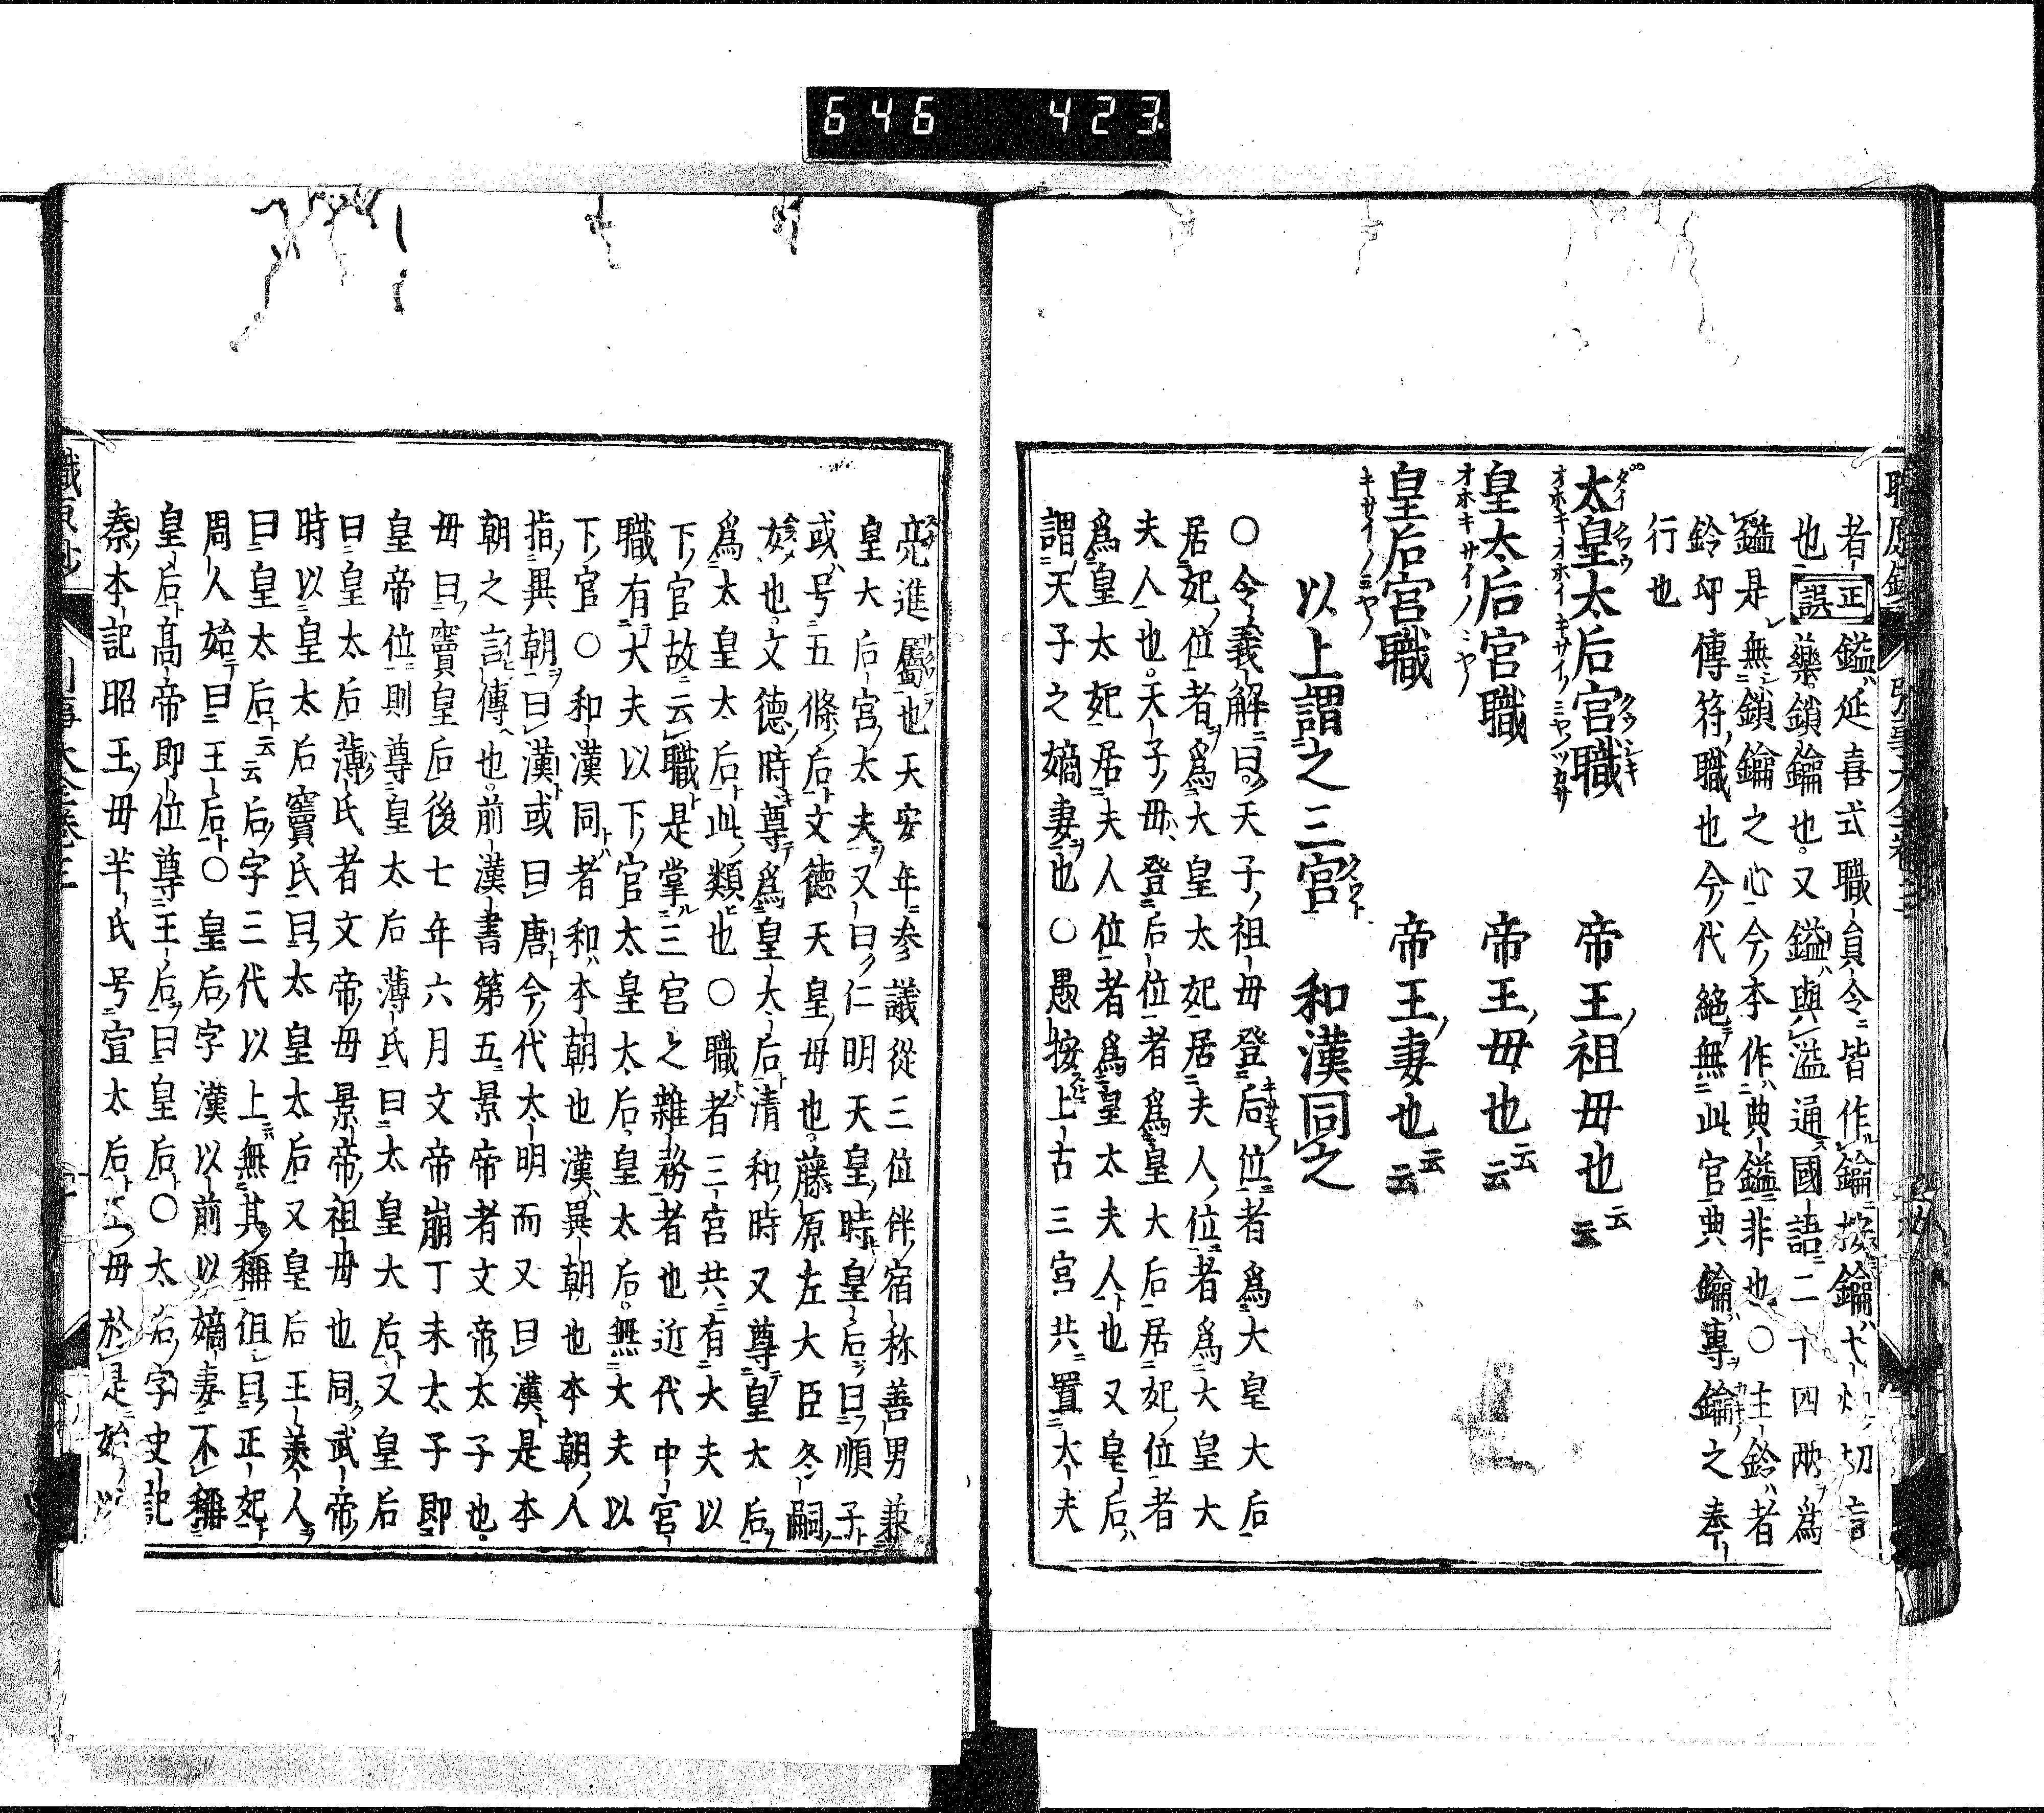 646 423
者正鎰延喜式職員令皆作鑰按鑰弋灼切音
也誤藥鎖鑰也又鎰與溢通國語二十四兩爲
鎰是無鎖鑰之心今本作典鎰非也〇主鈴者
鈴印傳符職也今代絕無此官典鑰專鑰之奉
行也
太皇太后宮職 帝王祖母也云云
皇太后宮職 帝王母也云云
皇后宮職 帝王妻也云云
以上謂之三宮 和漢同之
〇令義解曰天子祖母登后位者爲大皇大后
居妃位者爲大皇太妃居夫人位者爲大皇大
夫人也天子母登后位者爲皇大后居妃位者
爲皇太妃居夫人位者爲皇太夫人也又皇后
謂天子之嫡妻也〇愚按上古三宮共置太夫
亮進屬也天安年參議從三位伴宿称善男兼
皇大后宮太夫又曰仁明天皇時皇后曰順子
或号五條后文德天皇母也藤原左大臣冬嗣
女也文德時尊爲皇大后清和時又尊皇大后
爲太皇太后此類也〇職者三宮共有大夫以
下官故云職是掌三宮之雜務者也近代中宮
職有大夫以下官太皇太后皇太后無大夫以
下官〇和漢同者和本朝也漢異朝也本朝人
指異朝曰漢或曰唐今代太明而又曰漢是本
朝之言傳也前漢書第五景帝者文帝太子也
母曰竇皇后後七年六月文帝崩丁未太子即
皇帝位則尊皇太后薄氏曰太皇大后又皇后
曰皇太后薄氏者文帝母景帝祖母也同武帝
時以皇太后竇氏曰太皇太后又皇后王美人
曰皇太后云云后字三代以上無其稱但曰正妃
周人始曰王后〇皇后字漢以前以嫡妻不稱
皇后高帝即位尊王后曰皇后〇太后字史記
秦本記昭王母羋氏号宣太后王母於是始以